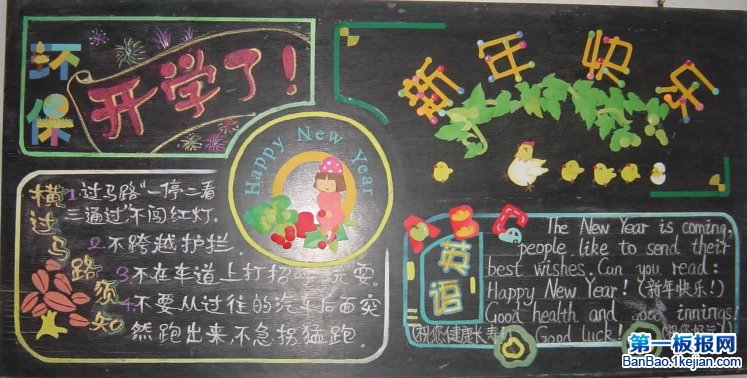 环保
开学了!
新年快乐
Happy New Year
横过马路须知
1.过马路“一停二看
三通过”不闯红灯.
2.不跨越护拦.
3.不在车道上打招 玩耍.
4.不要从过往的汽车后面突
然跑出来,不急拐猛跑.
ABC
英语
The New Year is coming,
people like to send their
best wishes. Can you read:
Happy New Year! (新年快乐!)
Good health and innings!
(祝您健康长寿!) Good luck!
第一板报网
BanBao.1kejian.com